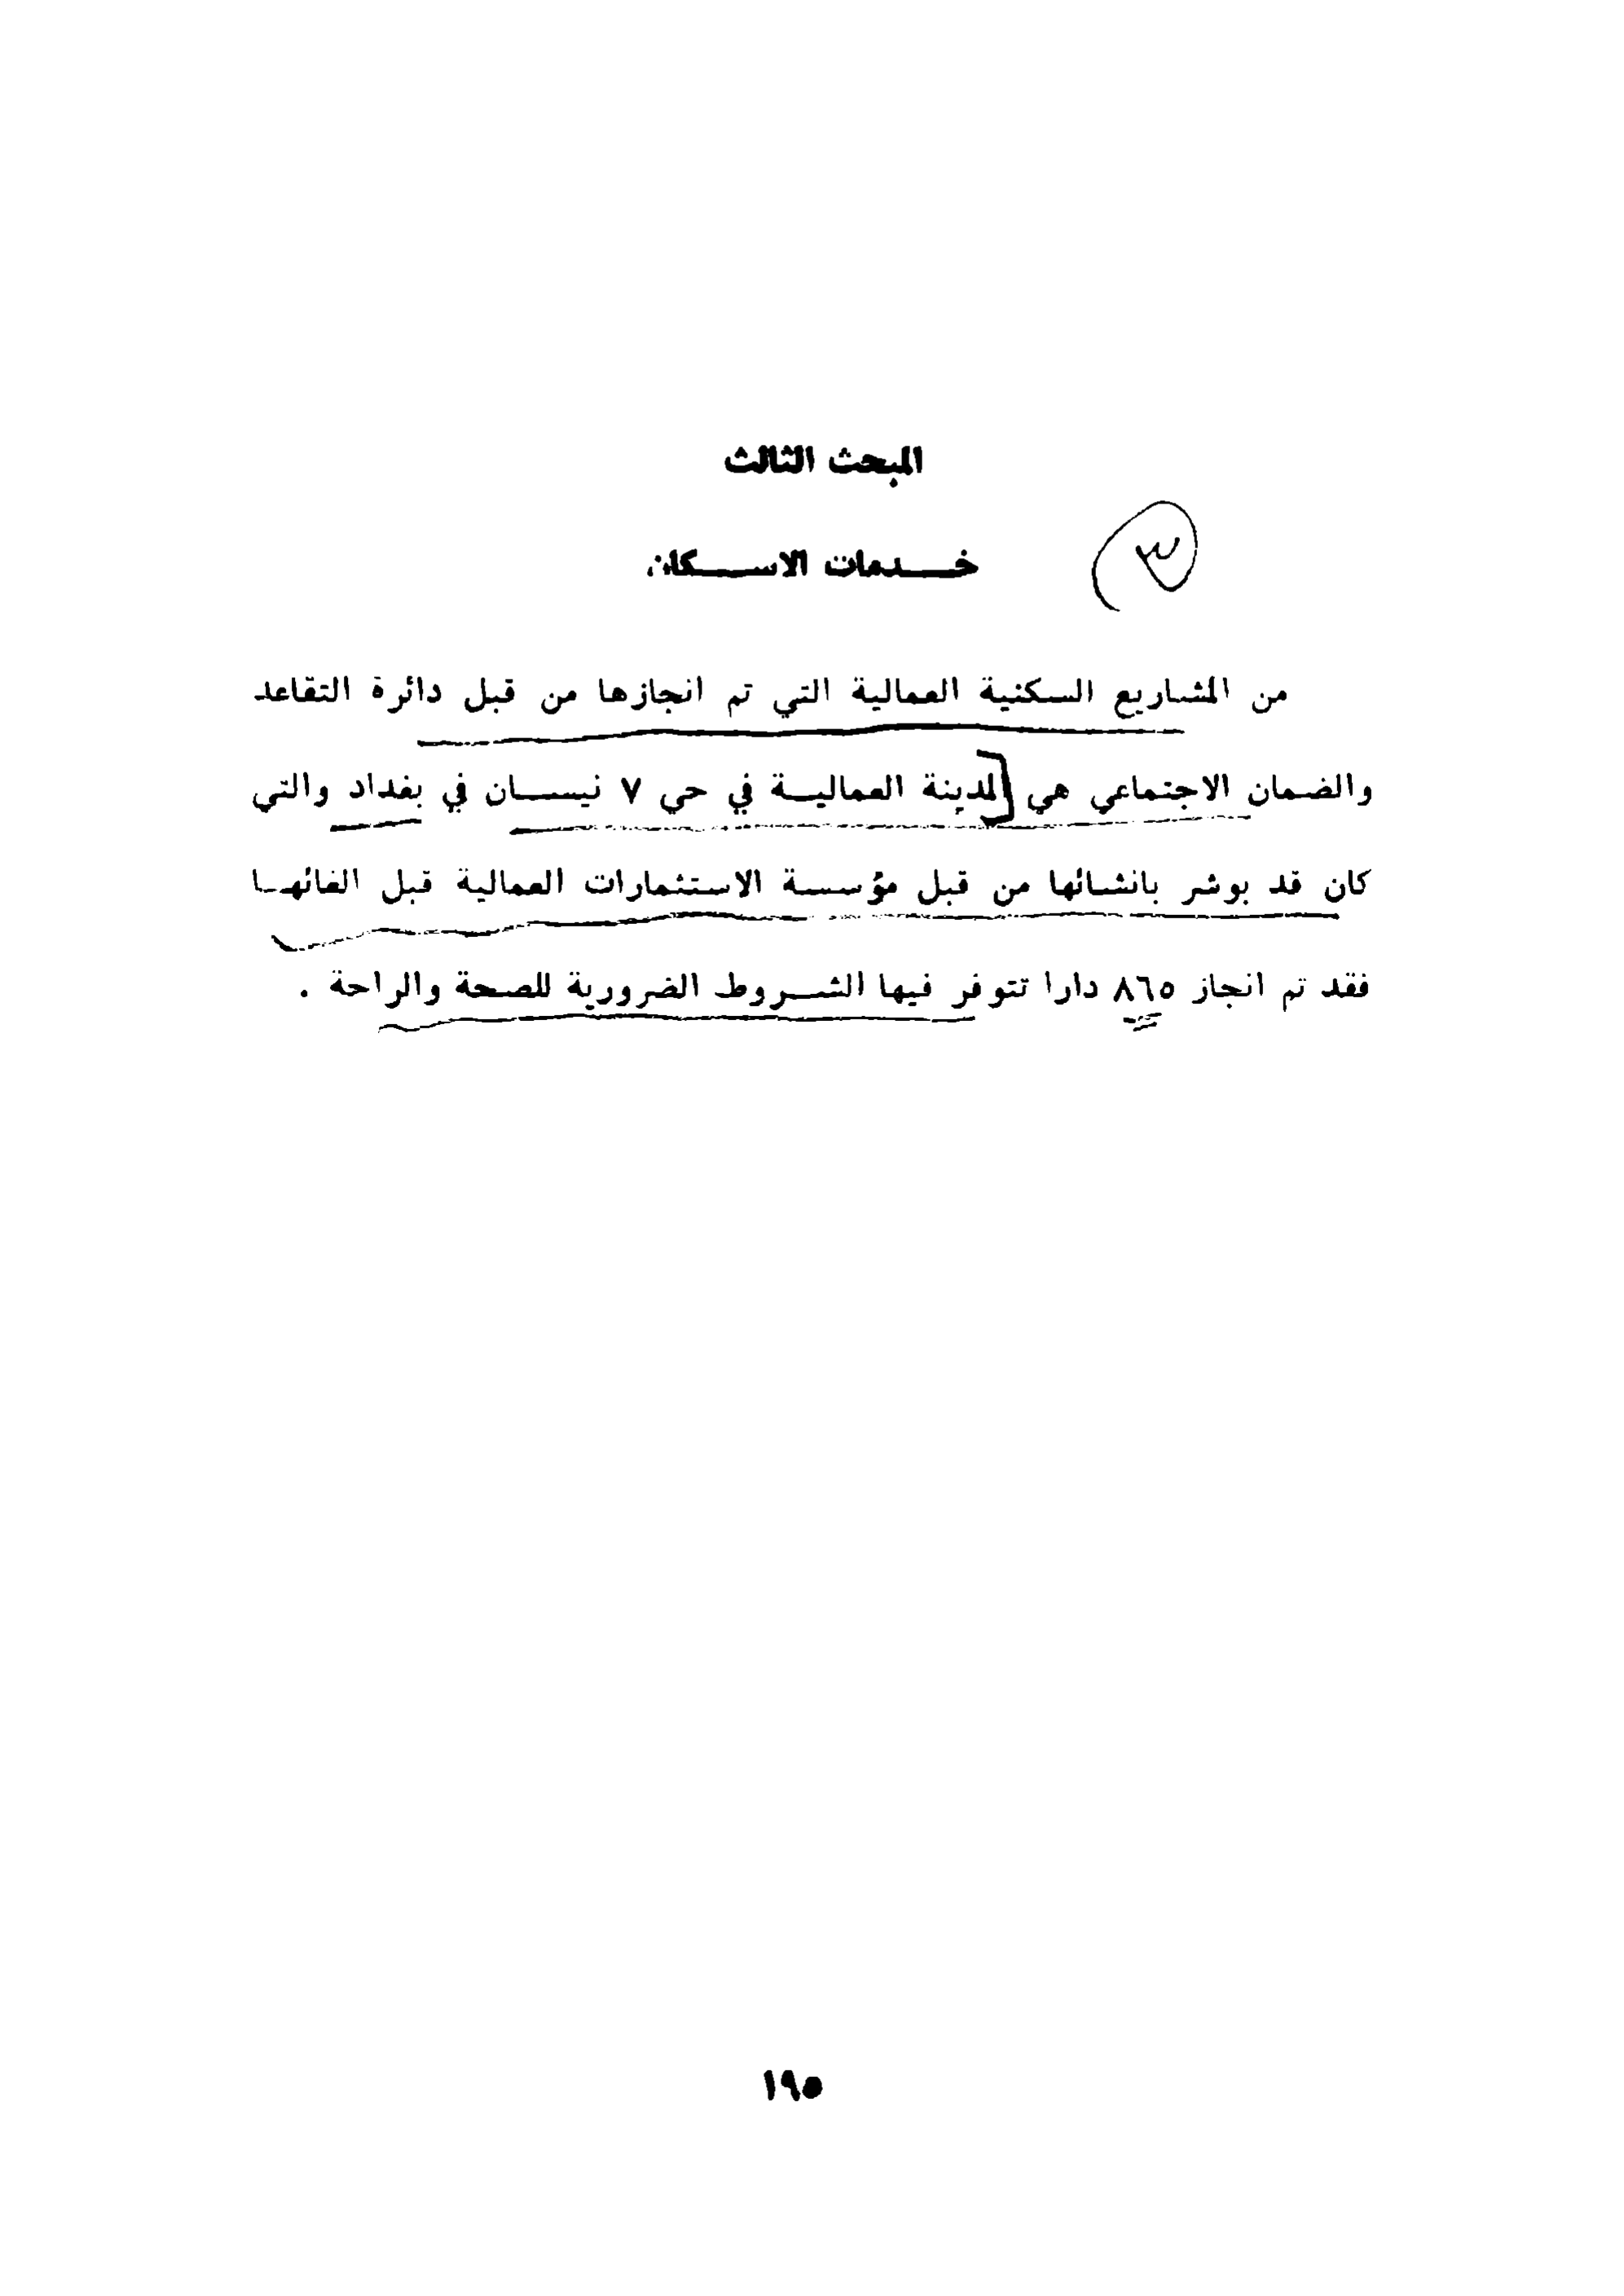 المبحث الثالث
خدمات الاسكان
٣
من المشاريع السكنية العمالية التي تم انجازها من قبل دائرة التقاعد
والضمان الاجتماعي هي المدينة العمالية في حي ٧ نيسان في بغداد والتي
كان قد بوشر بانشائها من قبل مؤسسة الاستثمارات العمالية قبل الغائها
فقد تم انجاز ٨٦٥ دارا تتوفر فيها الشروط الضرورية للصحة والراحة .
١٩٥